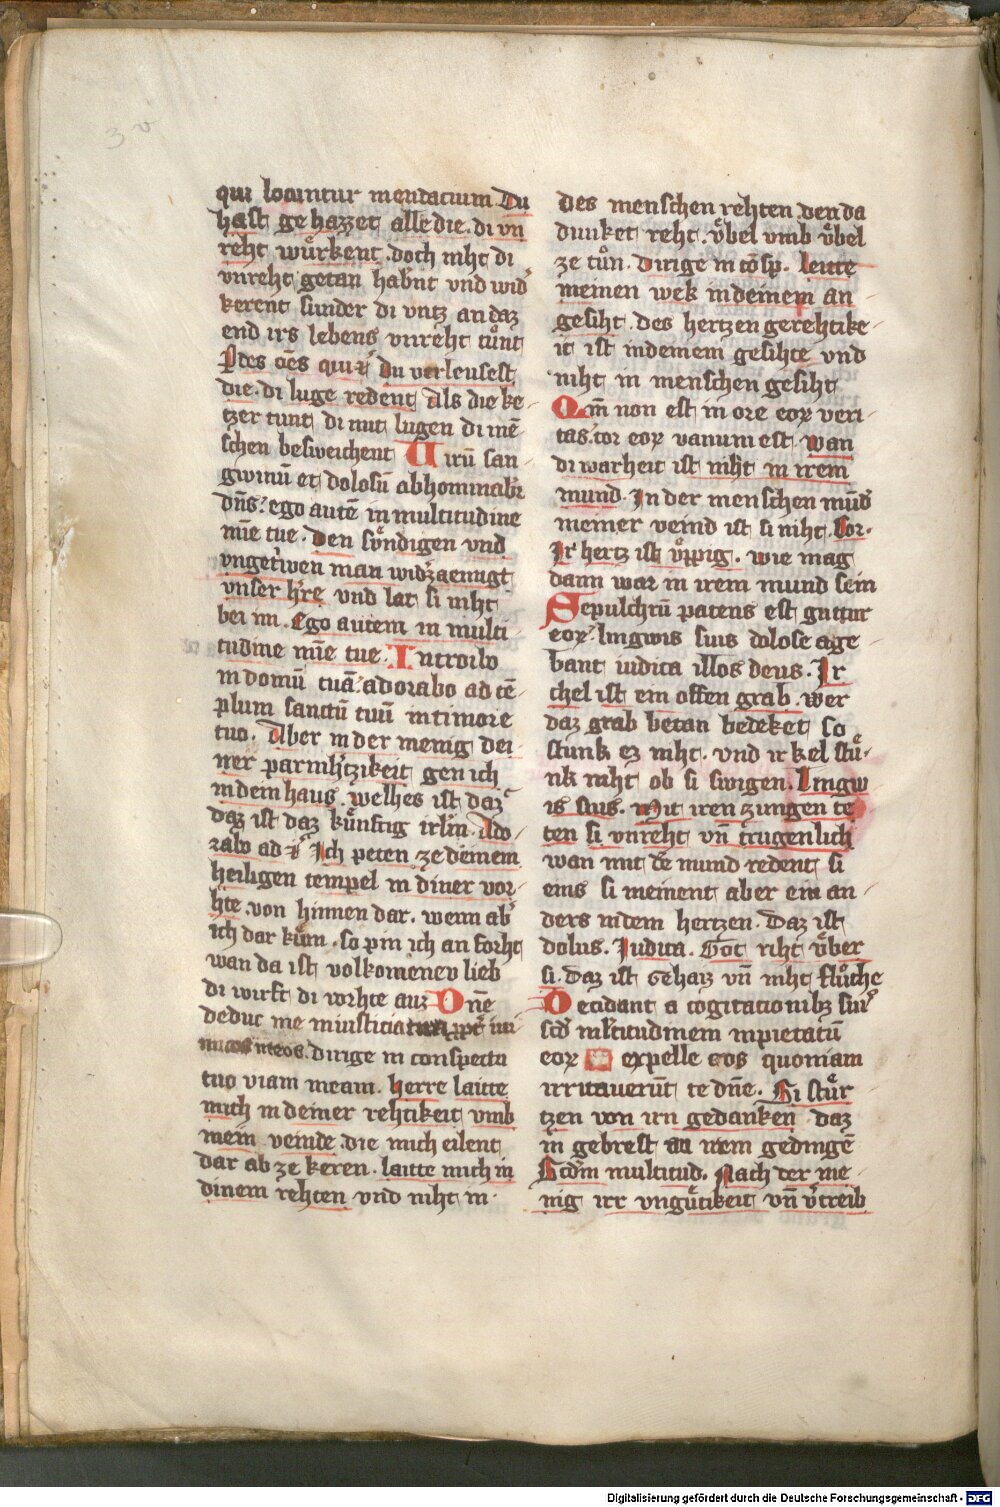 3 v
qui locuntur mendacium Du
hast gehazzet alle die. di vn
reht wuͤrkent. doch niht di
vnreht getan habnt vnd wid
kerent sunder di vntz an daz
end irs lebens vnreht tuͦnt
Du verleusest
die. di luge redent als die ke-
tzer tunt di mit lugen di mē
schen besweichent Virū san-
gwinū et dolosū abhominabr
dn̄s. ego autē in multitudine
mīe tue. Den suͤndigen vnd
vngetrwen man widzaemigt
vnser hre vnd lat si niht
bei im. Ego autem in multi
tudine mīe tue. Introibo
in domū tuā. adorabo ad tē-
plum sanctū tuū in timore
tuo. Aber in der menig dei-
ner parmhtzikeit gen ich
in dein haus. welhes ist daz
daz ist daz kuͤnftig irlm. Ado-
rabo ad Ich peten ze deinem
heiligen tempel in diner vor-
hte. von hinnen dar. wenn ab
ich dar kuͤm. so pin ich an forht
wan da ist volkomenev lieb
di wirft di vorhte auz Dn̄e
deduc me in iusticia tua ini
micos meos. dirige in conspectu
tuo viam meam. herre laitte
mich in deiner rehtikeit vmb
mein veinde. die mich eilent
dar ab ze keren. laitte mich in
dinem rehten vnd niht in
des menschen rehten den da
dunket reht. vͤbel vmb vͤbel
ze tuͦn. Dirige in cōsp. leitte
meinen wek in deinem an-
gesiht. des hertzen gerehtike-
it ist in deinem gesihte vnd
niht in menschen gesiht
Qm̄ non est in ore eoꝝ veri-
tas. cor eoꝝ vanum est wan
di warheit ist niht in irem
mund. In der menschen mūd
meiner veind ist si niht. Cor.
Ir hertz ist vͤppig. wie mag
dann war in irem mund sein
Sepulchrū patens est guttur
eoꝝ. lingwis suis dolose age-
bant iudica illos deus. Ir
chel ist ein offen grab. wer
daz grab vetan bedeket so
stunk ez niht. vnd ir kel stuͤ-
nk niht ob si swigen. lingw
is suis. Mit iren zungen te-
ten si vnreht vn̄ trugenlich
wan mit dē mund redent si
eins si meinent aber ein an-
ders in dem hertzen. Daz ist
dolus. Iudica. Got riht vͤber
si. Daz ist gehaiz vn̄ niht fluͤche
Decidant a cogitacionibꝫ suis
scd̄ m̄ltitudinem inpietatū
eoꝝ expelle eos quoniam
irritauerūt te dn̄e. Si stuͤr
tzen von irn gedanken daz
in gebrest an irem gedingē
Scdm multitud. Nach der me-
nig irr vnguͤtikeit vn̄ vtreib
Digitalisierung gefördert durch die Deutsche Forschungsgemeinschaft - DFG